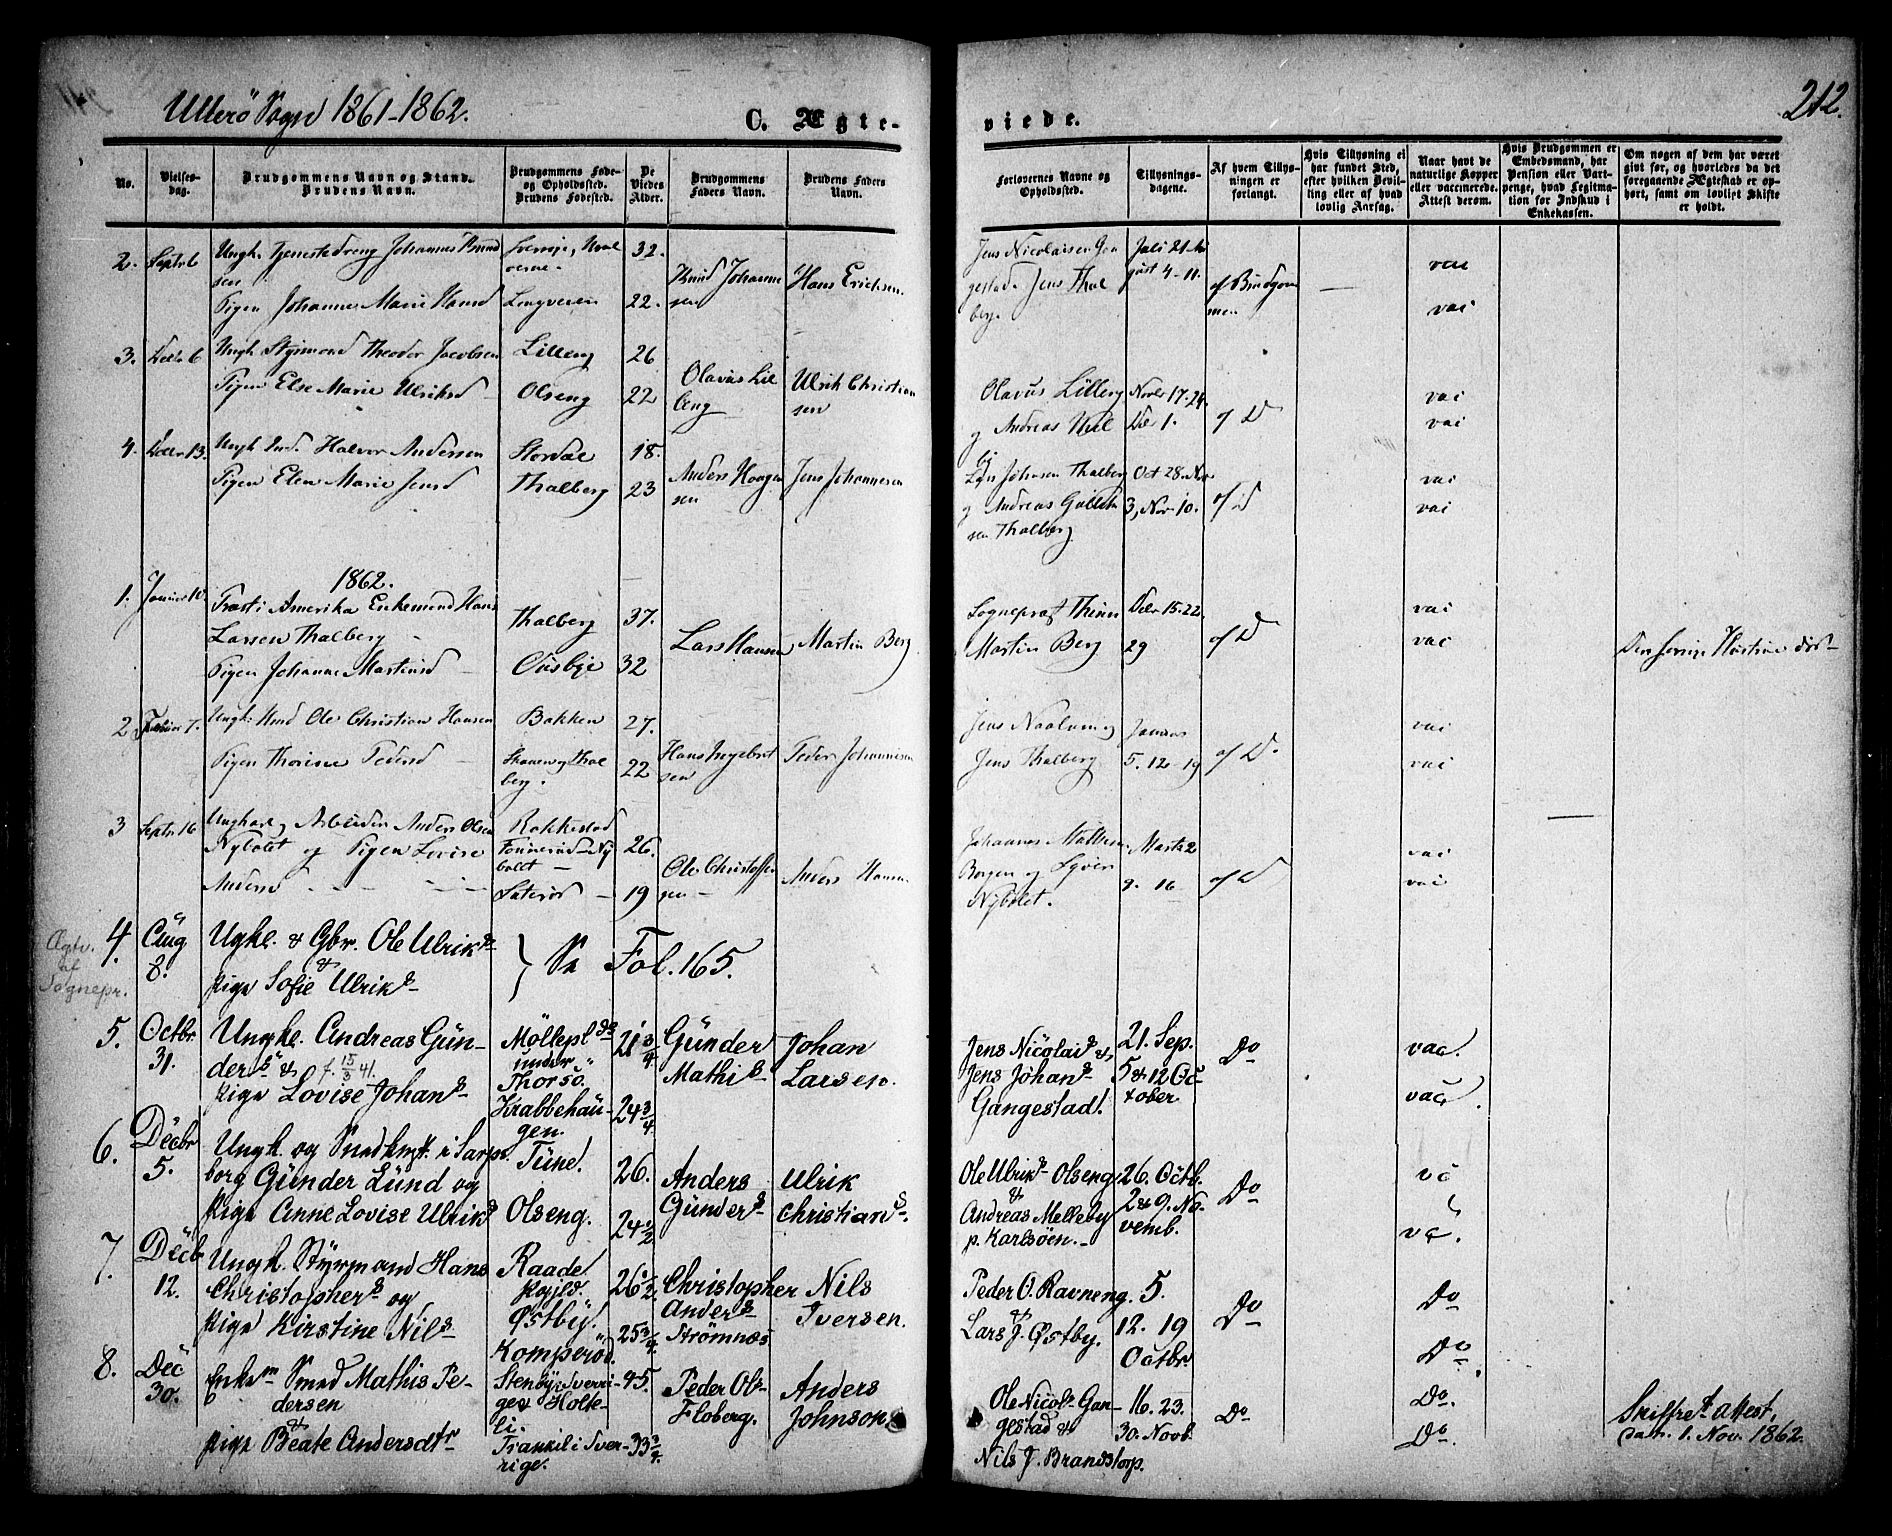 Ullerö Sogn 1861-1862.
C. Ægte-
viede.
212.
No.
Vielses-
dag.
Brudgommens Navn og Stand.
Brudens Navn.
Brudgommens Føde-
og Opholdssted.
Brudens Fødested.
De
Viedes
Alder.
Brudgommens
Faders Navn.
Brudens Faders
Navn.
Forlovernes Navne og
Opholdssted.
Tillysnings-
dagene.
Af hvem Tillys-
ningen er
forlangt.
Hvis Tillysning ei
har fundet Sted,
efter hvilken Bevil-
ling eller af hvad
lovlig Aarsag.
Naar havt de
naturlige Kopper
eller vaccinerede.
Attest derom.
Hvis Brudgommen er
Embedsmand, har
Pension eller Vart-
penge, hvad Legitima-
tion for Indskud i
Enkekassen.
Om nogen af dem har været
gift før, og hvorledes da det
foregaaende Ægteskab er op-
hørt, samt om lovligt Skifte
er holdt.
2. Septr 6
Ungk. Tjenestedreng Johannes Knud
sen
32.
Knud Johanne
sen
Hans Erichsen.
Pigen Johanne Marie Hansd
22.
Jens Nicolaisen Gan
gestad. Jens Thal
berg.
Juli 21 Au
gust 4-11.
af Brudgom
men
vac
vac
3. Decbr 6
Ungk. Styrmand Theodor Jacobsen
Lilleng
26
Pigen Else Marie Ulriksd
Olseng
22
Olavus Lil
leng
Ulrik Christian
sen
Olavus Lilleng
og Andreas
Novbr 17. 24.
Dec 1.
af D
vac
vac
4. Decbr 13.
Ungk. Halvor Andersen
18.
Pigen Elen Marie Jensd
Thalberg
23
Anders Haagen
sen
Jens Johannesen
Johnsen Thalberg
og Andreas Gulbrand
sen Thalberg
Oct 28. Nov
3, Nov 10.
af D
vac
vac
1862.
1. Januar 10.
Præst i Amerika Enkemand Hans
Larsen Thalberg
Thalberg
37.
Pigen Johanne Martinsd
Ousbye
32
Lars Hansen
Martin Berg
Sognepræst
Martin Berg
Decbr 15. 22
29
af D
vac
vac
Den forrige Hustrue død
2 Februar 7.
Ungk. Ole Christian Hansen
Bakken
27.
Pigen Thorine Pedersd
Skoven og Thal
berg.
22
Hans Ingebret
sen
Peder Johannesen
Jens Thalberg
Januar
5. 12-19
af D.
vac
vac
3 Septr 16
Ungkarl og Arbeider Anders Olsen
Nybolet og Pigen Lovise
Andersd
Rakkestad
Nybolt
26.
19
Ole Christoffer
sen
Anders Hansen
Johannes
Borgen og
Nybolet.
Marts 2
9. 16
af D
vac
vac
Ægtv.
af
Sognepr.
4. Aug
8.
Ugkl. & Gbr. Ole Ulriks
&
Pige Sofie Ulriks
} Se Fol. 165.
5. Octbr
31.
Ungkl. Andreas Gün-
ders & f. 15/3 41.
Pige Lovise Johans
Möllepl
under
Thorsö.
Krabbehau-
gen.
21 3/4
24 3/4
Günder
Mathis
Johan
Larsen.
Jens Nicolais &
Jens Johans
Gangestad.
21. Sep.
5 & 12 Oc-
tober
Do
vac.
vac.
6. Decbr
5.
Ungk. og Smedkngt. i Sarps
borg Günder Lünd og
Pige Anne Lovise Ulriks
Tüne.
Olseng.
26.
24 1/2
Anders
Günders
Ulrik
Christians.
Ole Ulriks Olseng
&
Andreas Melleby
p. Karlsöen.
26. Octb.
2 & 9. No-
vemb.
Do
vc
vc.
7. Decb
12.
Ungk. Styrmand Hans
Christophers og
Pige Kirstine Nils
Raade
Østby.
Komperöd.
26 1/2
25 3/4
Christopher
Anders
Strömnæs
Nils
Iversen.
Peder O. Ravneng
&
Lars J. Østby.
5.
12. 19
Octbr
Do
Do
Do
8. Dec
30.
Enkem Smed Mathis Pe-
dersen
&
Pige Beate Andersdtr
Stenbye Sverri-
ge & Holte-
li.
Trankil i Sver-
rige.
45.
33 3/4
Peder Ols
Floberg.
Anders
Johnson
Ole Nicols Gan-
gestad &
Nils J. Brandstorp.
16. 23.
30. Novb.
Do
Do.
Do.
Skifteattest,
dat. 1. Nov. 1862.